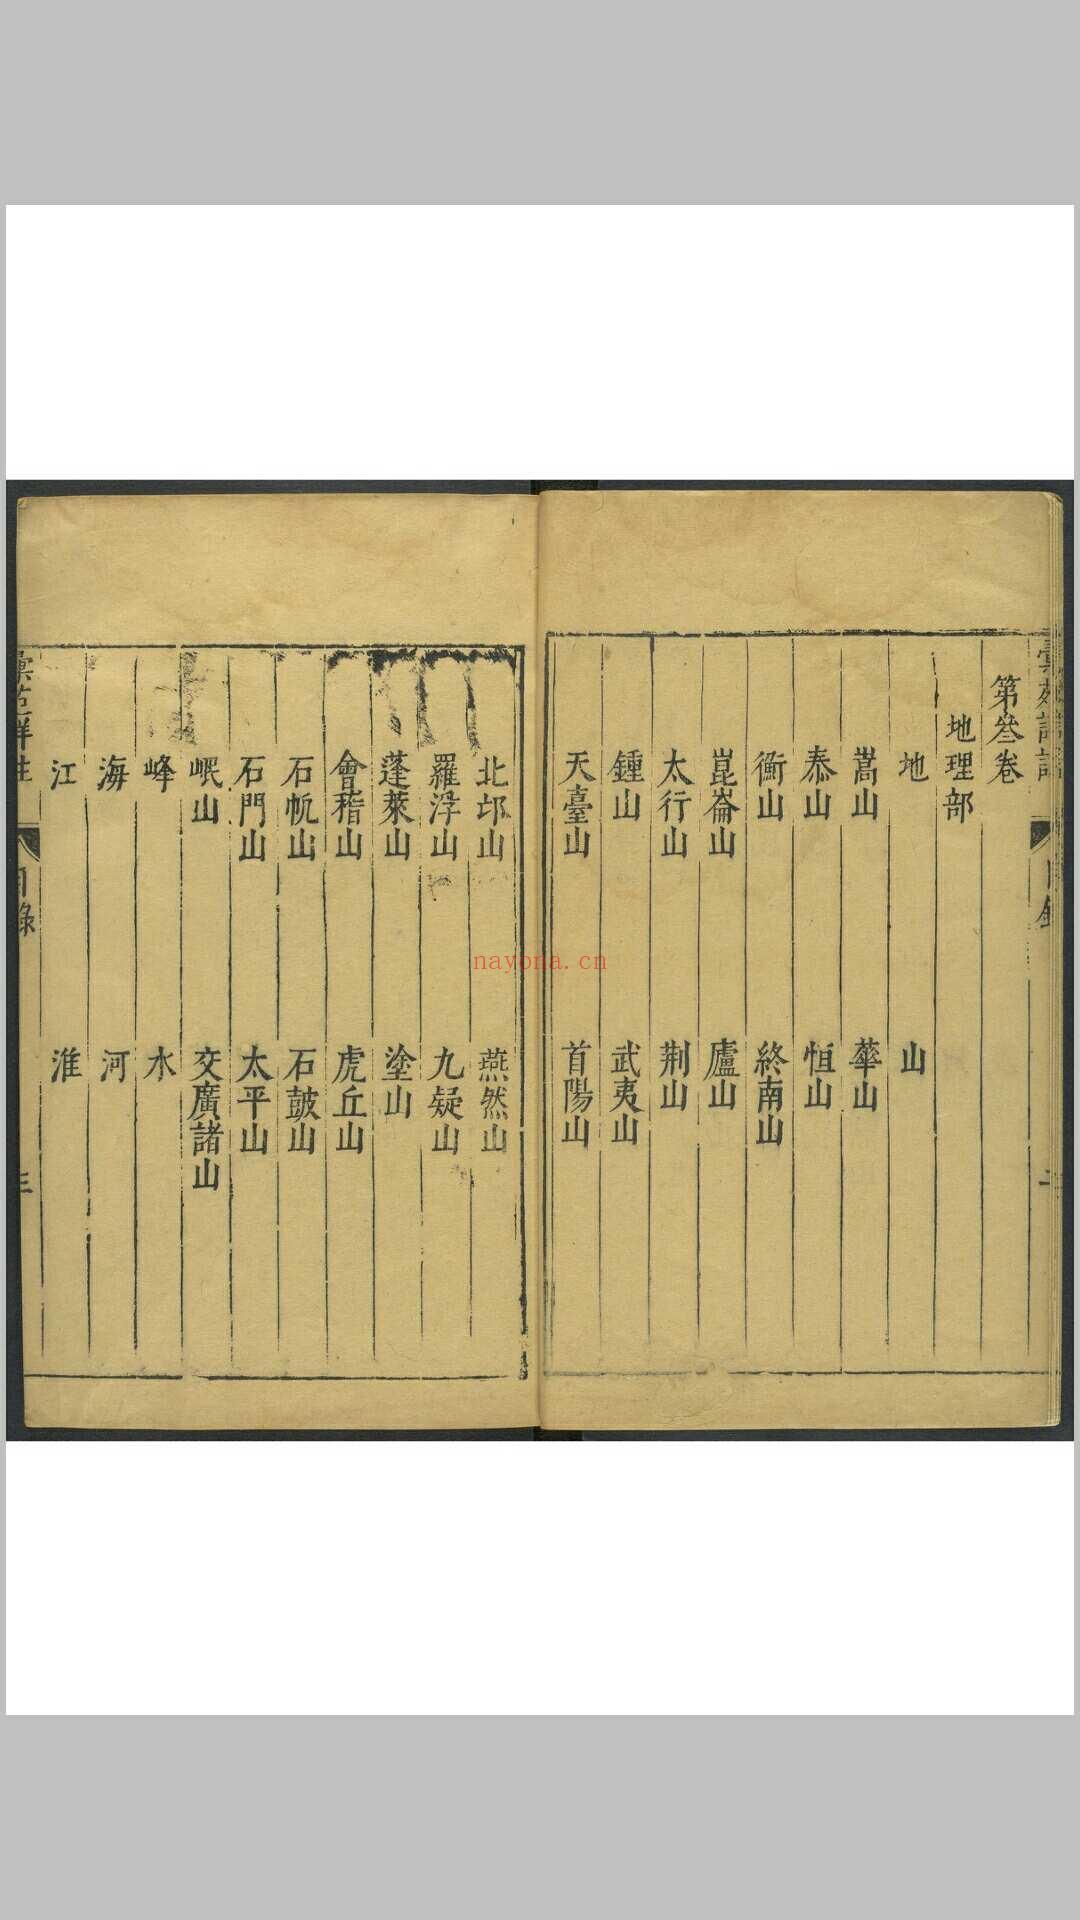 第叄卷
地理部
地 山
嵩山 華山
泰山 恒山
衡山 終南山
崑崙山 廬山
太行山 荆山
鍾山 武夷山
天臺山 首陽山
北邙山 燕然山
羅浮山 九疑山
蓬萊山 塗山
會稽山 虎丘山
石帆山 石鼓山
石門山 太平山
岷山 交廣諸山
峰 水
海 河
江 淮
彙苑詳註 目錄 三
nayona.cn